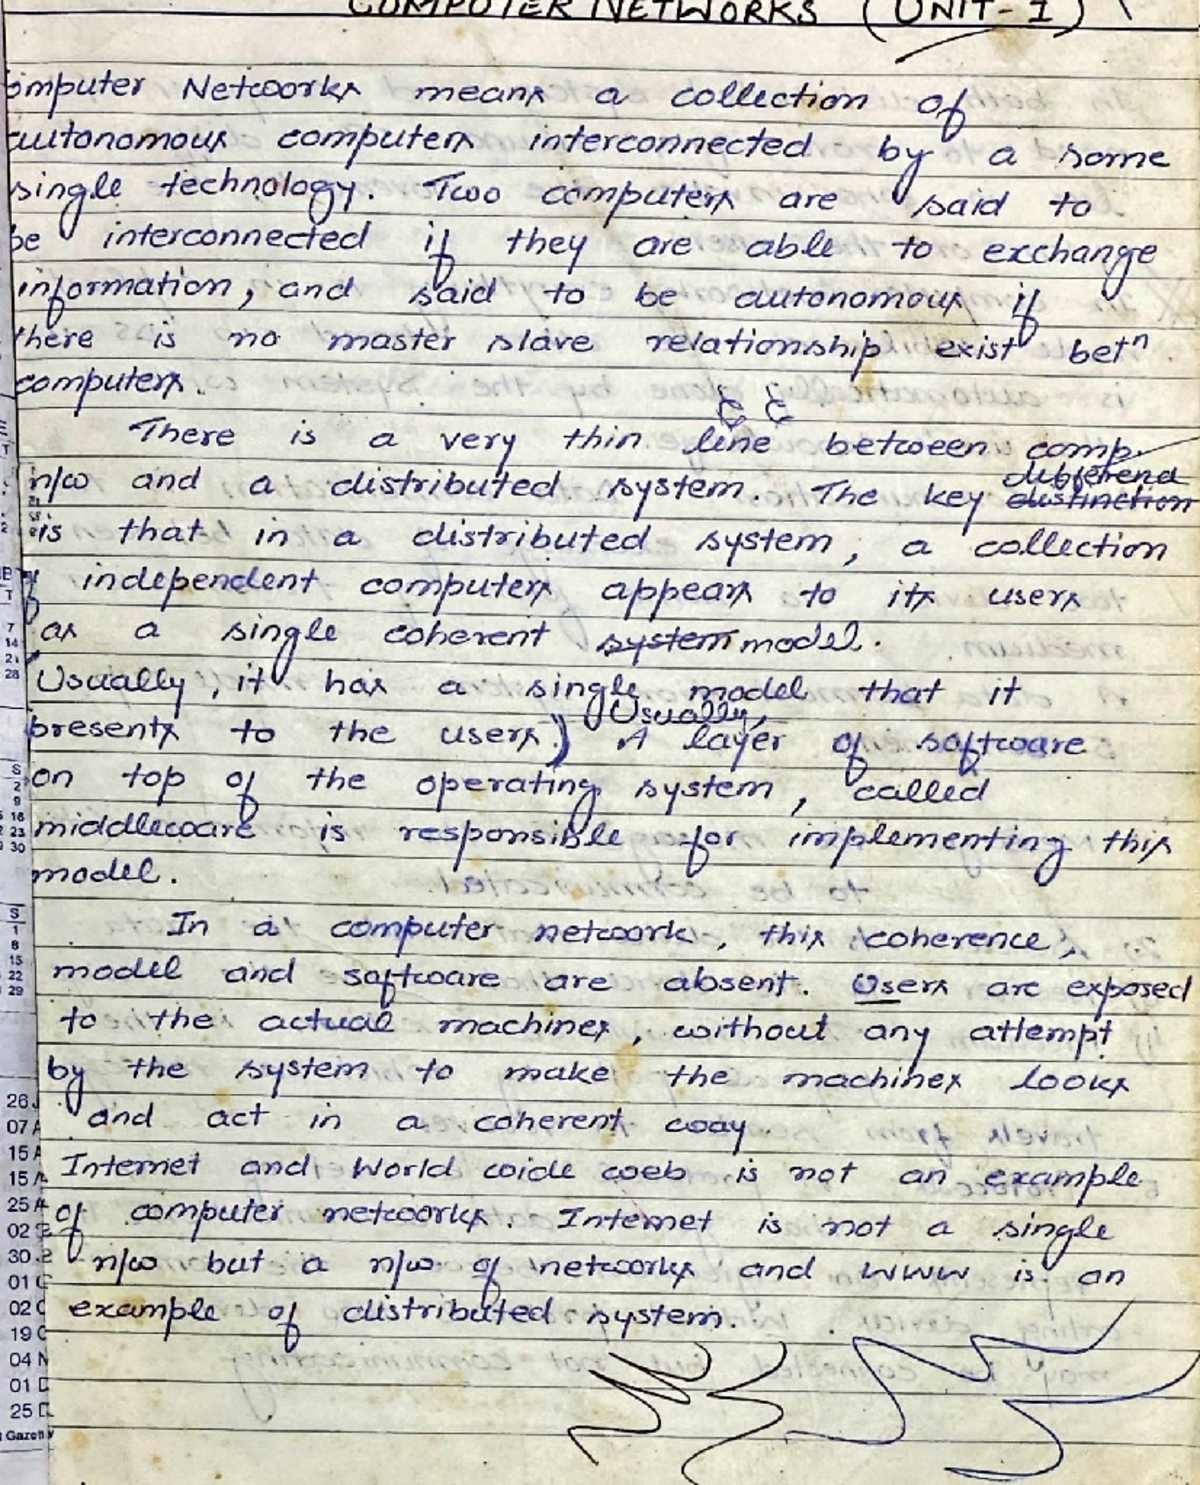 COMPUTER NETWORKS (UNIT-1)
omputer Networks means a collection of
autonomous computers interconnected by a some
single technology. Two computers are said to
be interconnected if they are able to exchange
information, and said to be autonomous if
there is no master slave relationship exist betⁿ
computers.
There is a very thin line between comp.
n/w and a distributed system. The key distinction
differenc
is that in a distributed system, a collection
of independent computers appears to its users
as a single coherent system model.
Usually, it has a single model that it
presents to the users.) Usually, A layer of software
on top of the operating system, called
middleware is responsible for implementing this
model.
In a computer network, this coherence,
model and software are absent. Users are exposed
to the actual machines, without any attempt
by the system to make the machines looks
and act in a coherent way.
Internet and World wide web is not an example
of computer networks. Internet is not a single
n/w but a n/w of networks and WWW is an
example of distributed system.